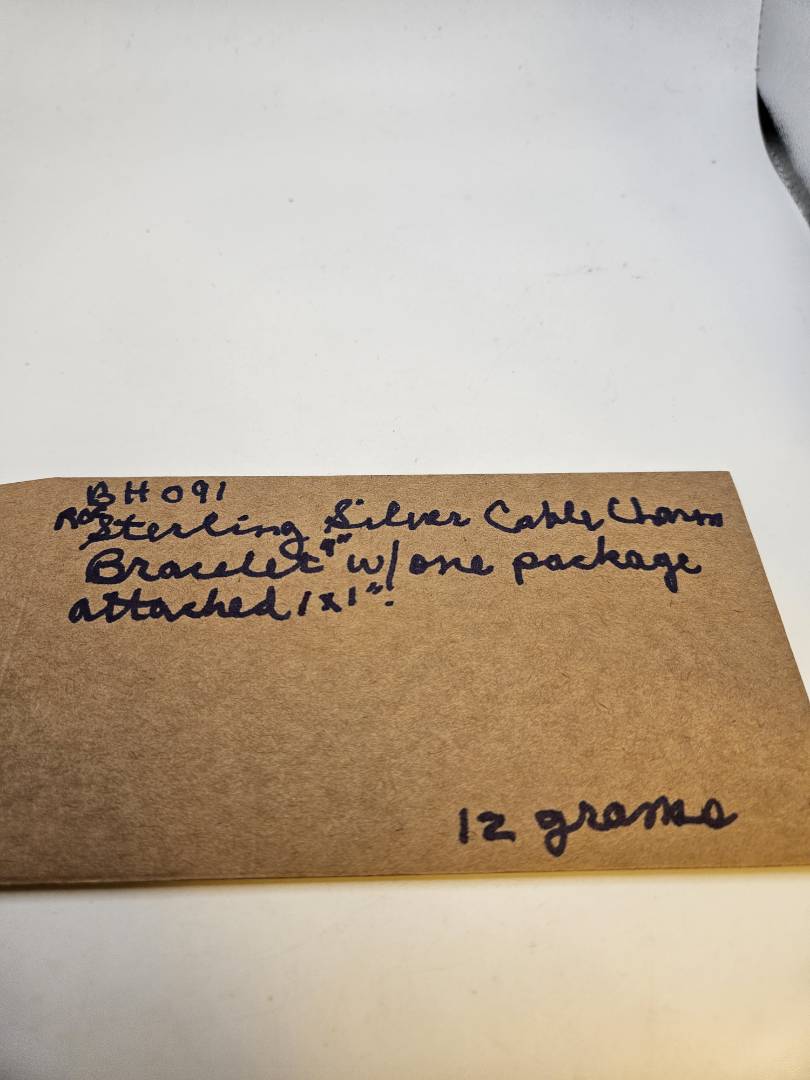 BH091
Sterling Silver Cable Charm
Bracelet w/one package
attached 1x1".
12 grams